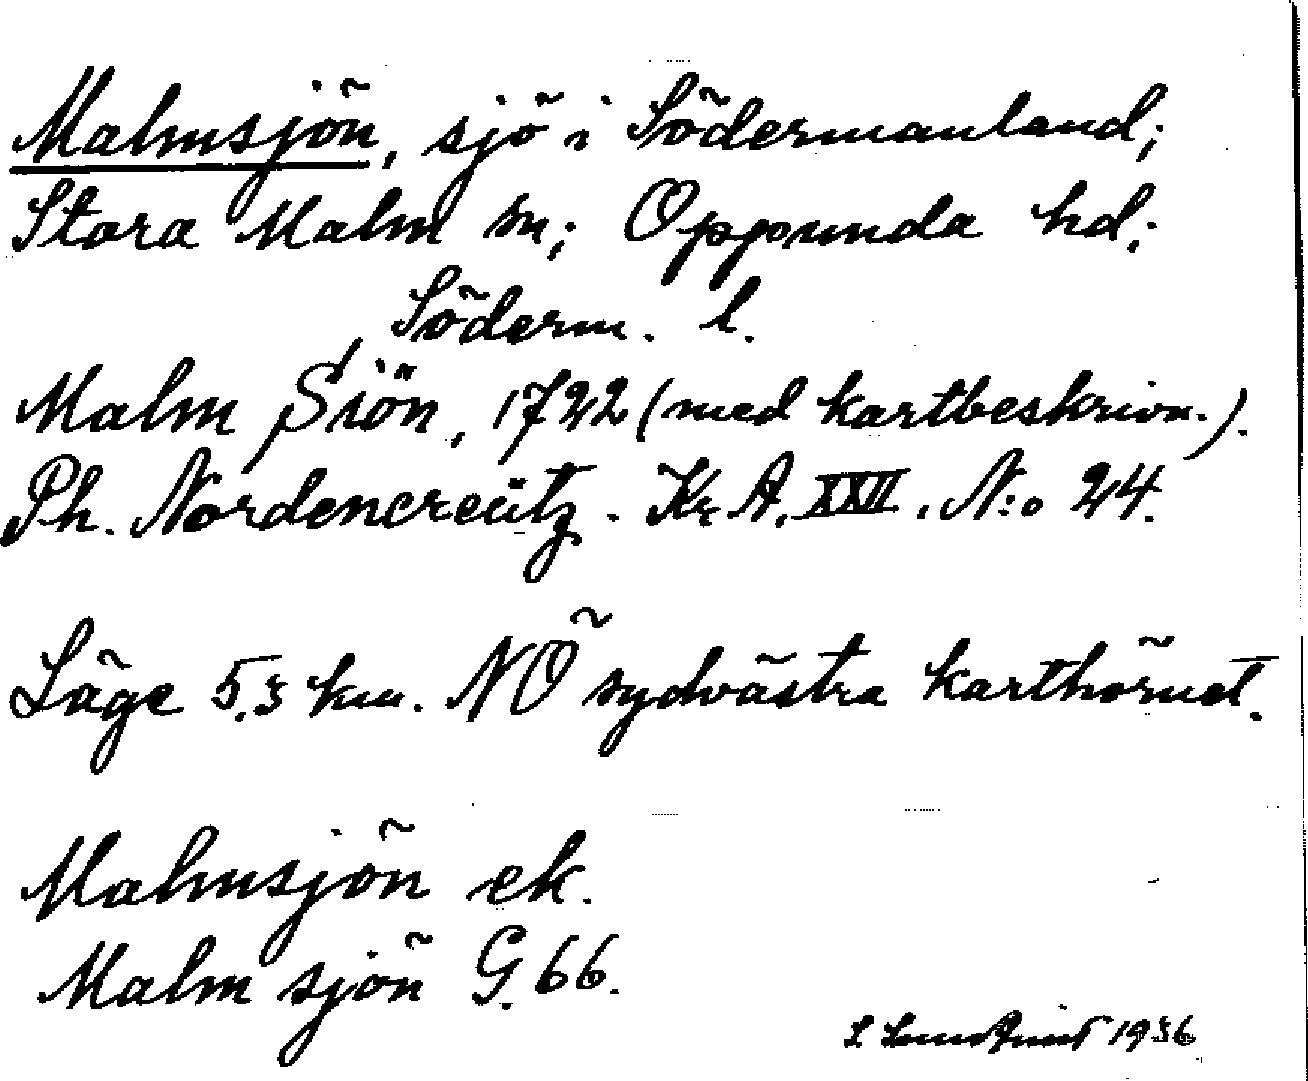 Malmsjön, sjö i Södermanland;
Stora Malm sn; Oppunda hd;
Söderm. l.
Malm Siön, 1722 (med kartbeskrivn.).
Ph. Nordencreütz. Kr. A. XXII. N:o 24.
Läge 5,3 km. NÖ sydvästra karthörnet.
Malmsjön ek.
Malm sjön G. 66.
1936